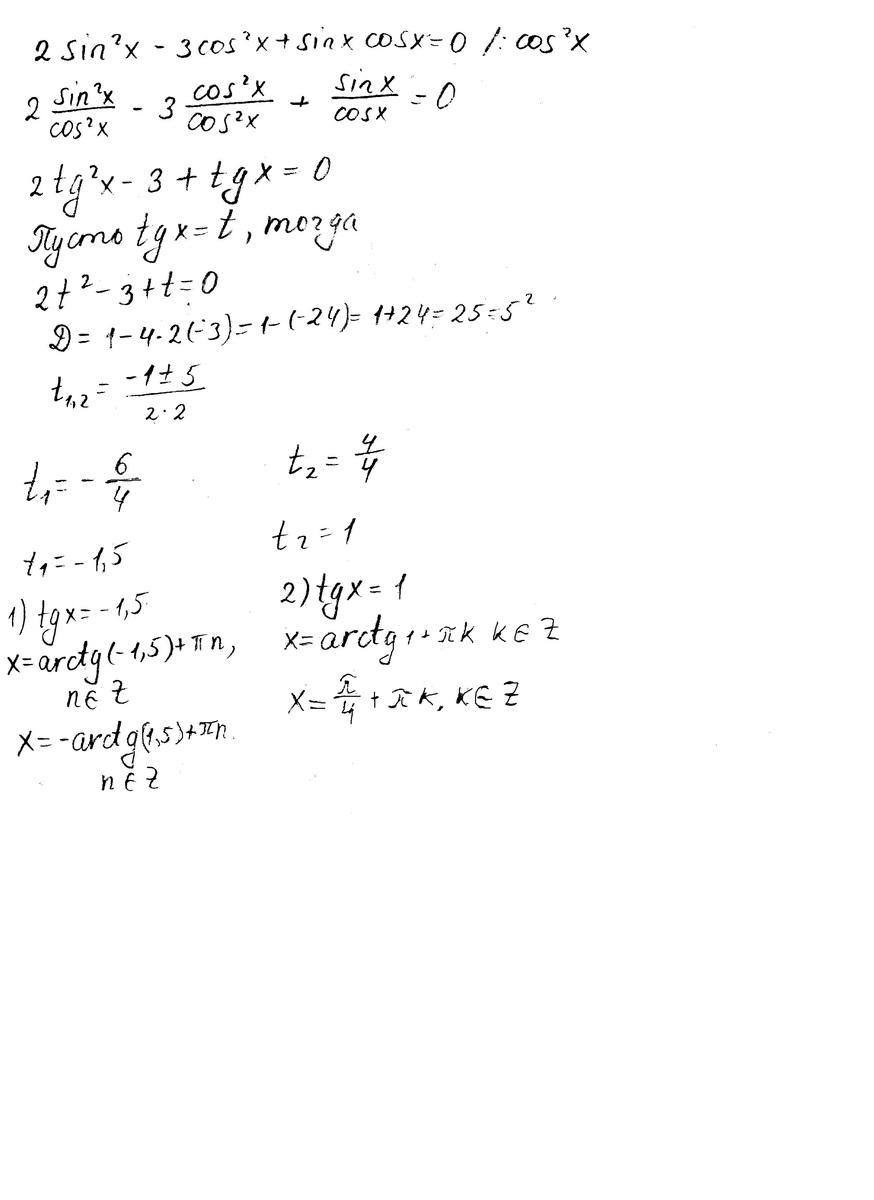 2 sin²x - 3cos²x + sinx cosx = 0 /: cos²x
2 sin²x/cos²x - 3 cos²x/cos²x + sin x/cosx = 0
2 tg²x - 3 + tg x = 0
Пусть tg x = t, тогда
2t² - 3 + t = 0
D = 1 - 4·2(-3) = 1 - (-24) = 1+24 = 25 = 5²
t₁,₂ = (-1 ± 5)/(2·2)
t₁ = - 6/4
t₁ = - 1,5
1) tgx = -1,5
x = arctg(-1,5) + πn,
n ∈ Z
x = -arctg(1,5) + πn.
n ∈ Z
t₂ = 4/4
t₂ = 1
2) tgx = 1
x = arctg 1 + πk k ∈ Z
x = π/4 + πk, k ∈ Z